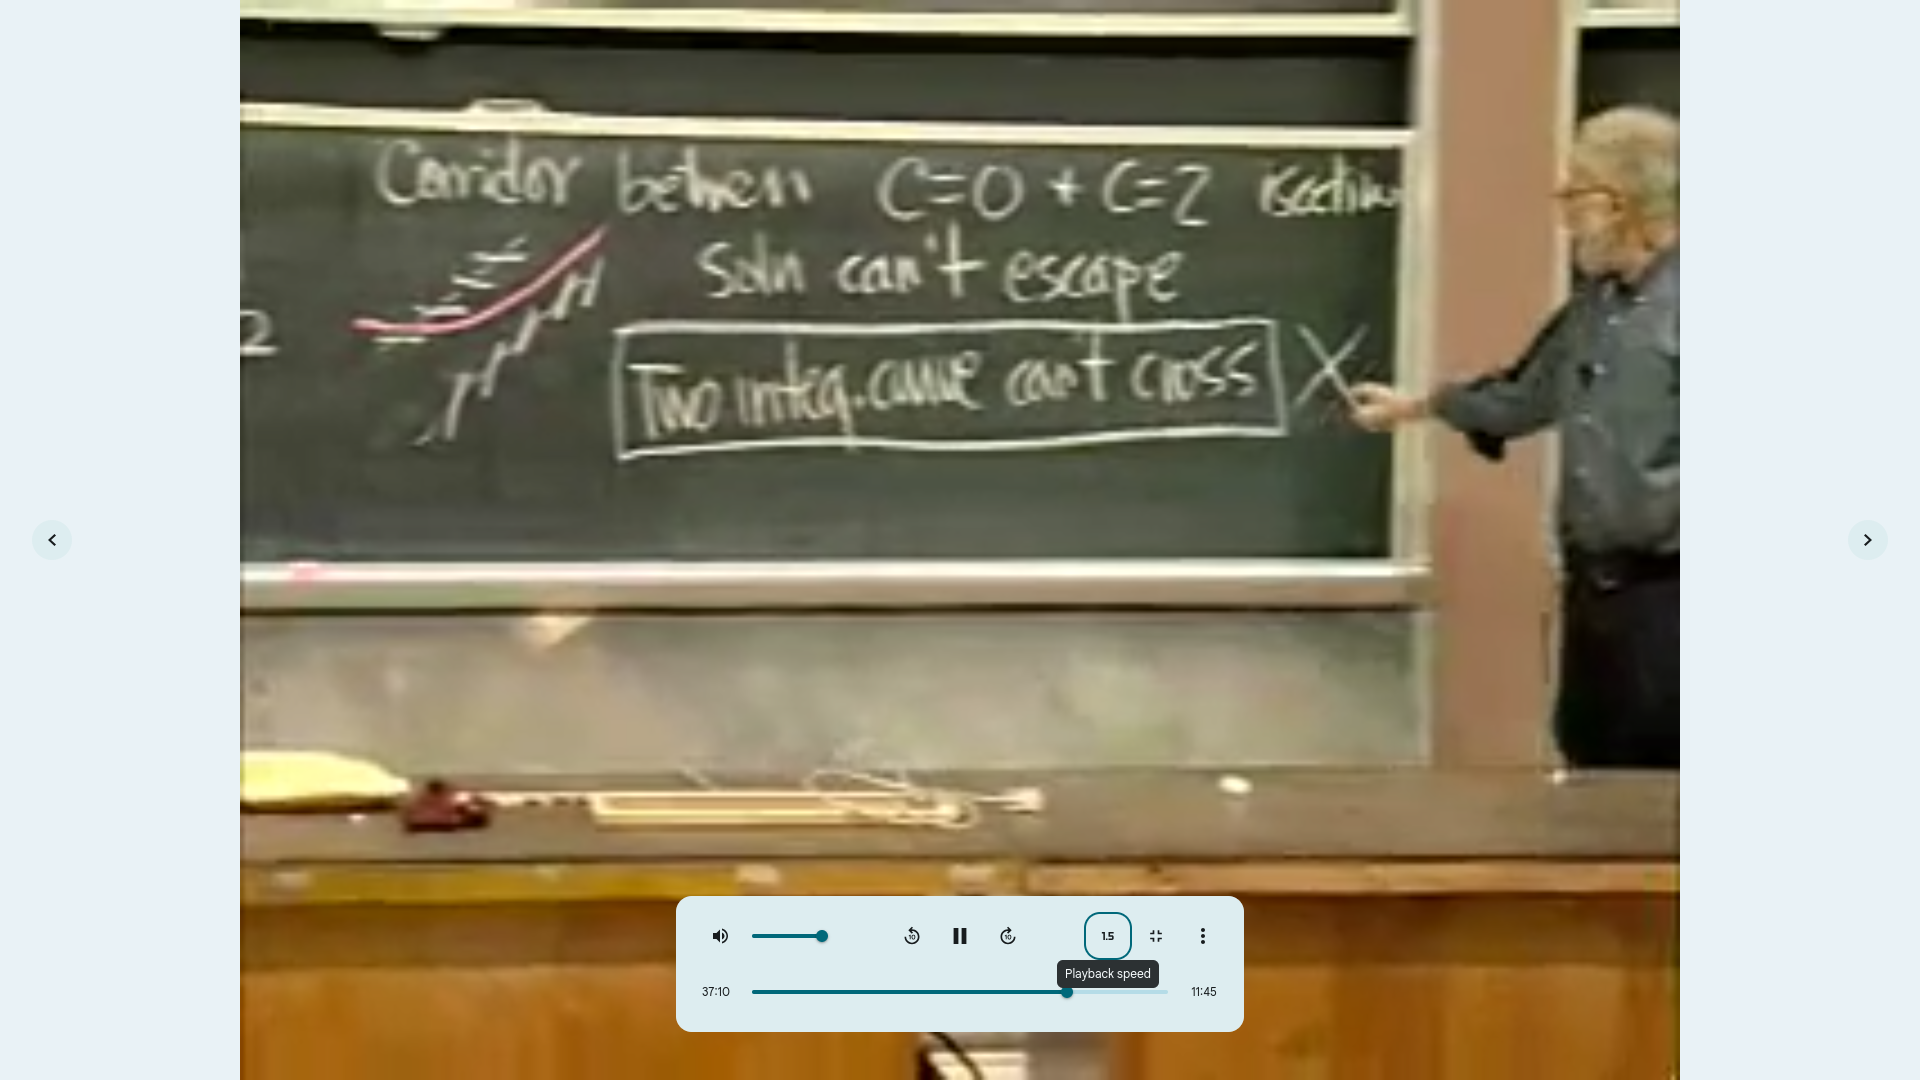 Corridor between C=0 + C=2 isoclin
Soln can't escape
2
Two integ. curve can't cross
1.5
Playback speed
37:10
11:45